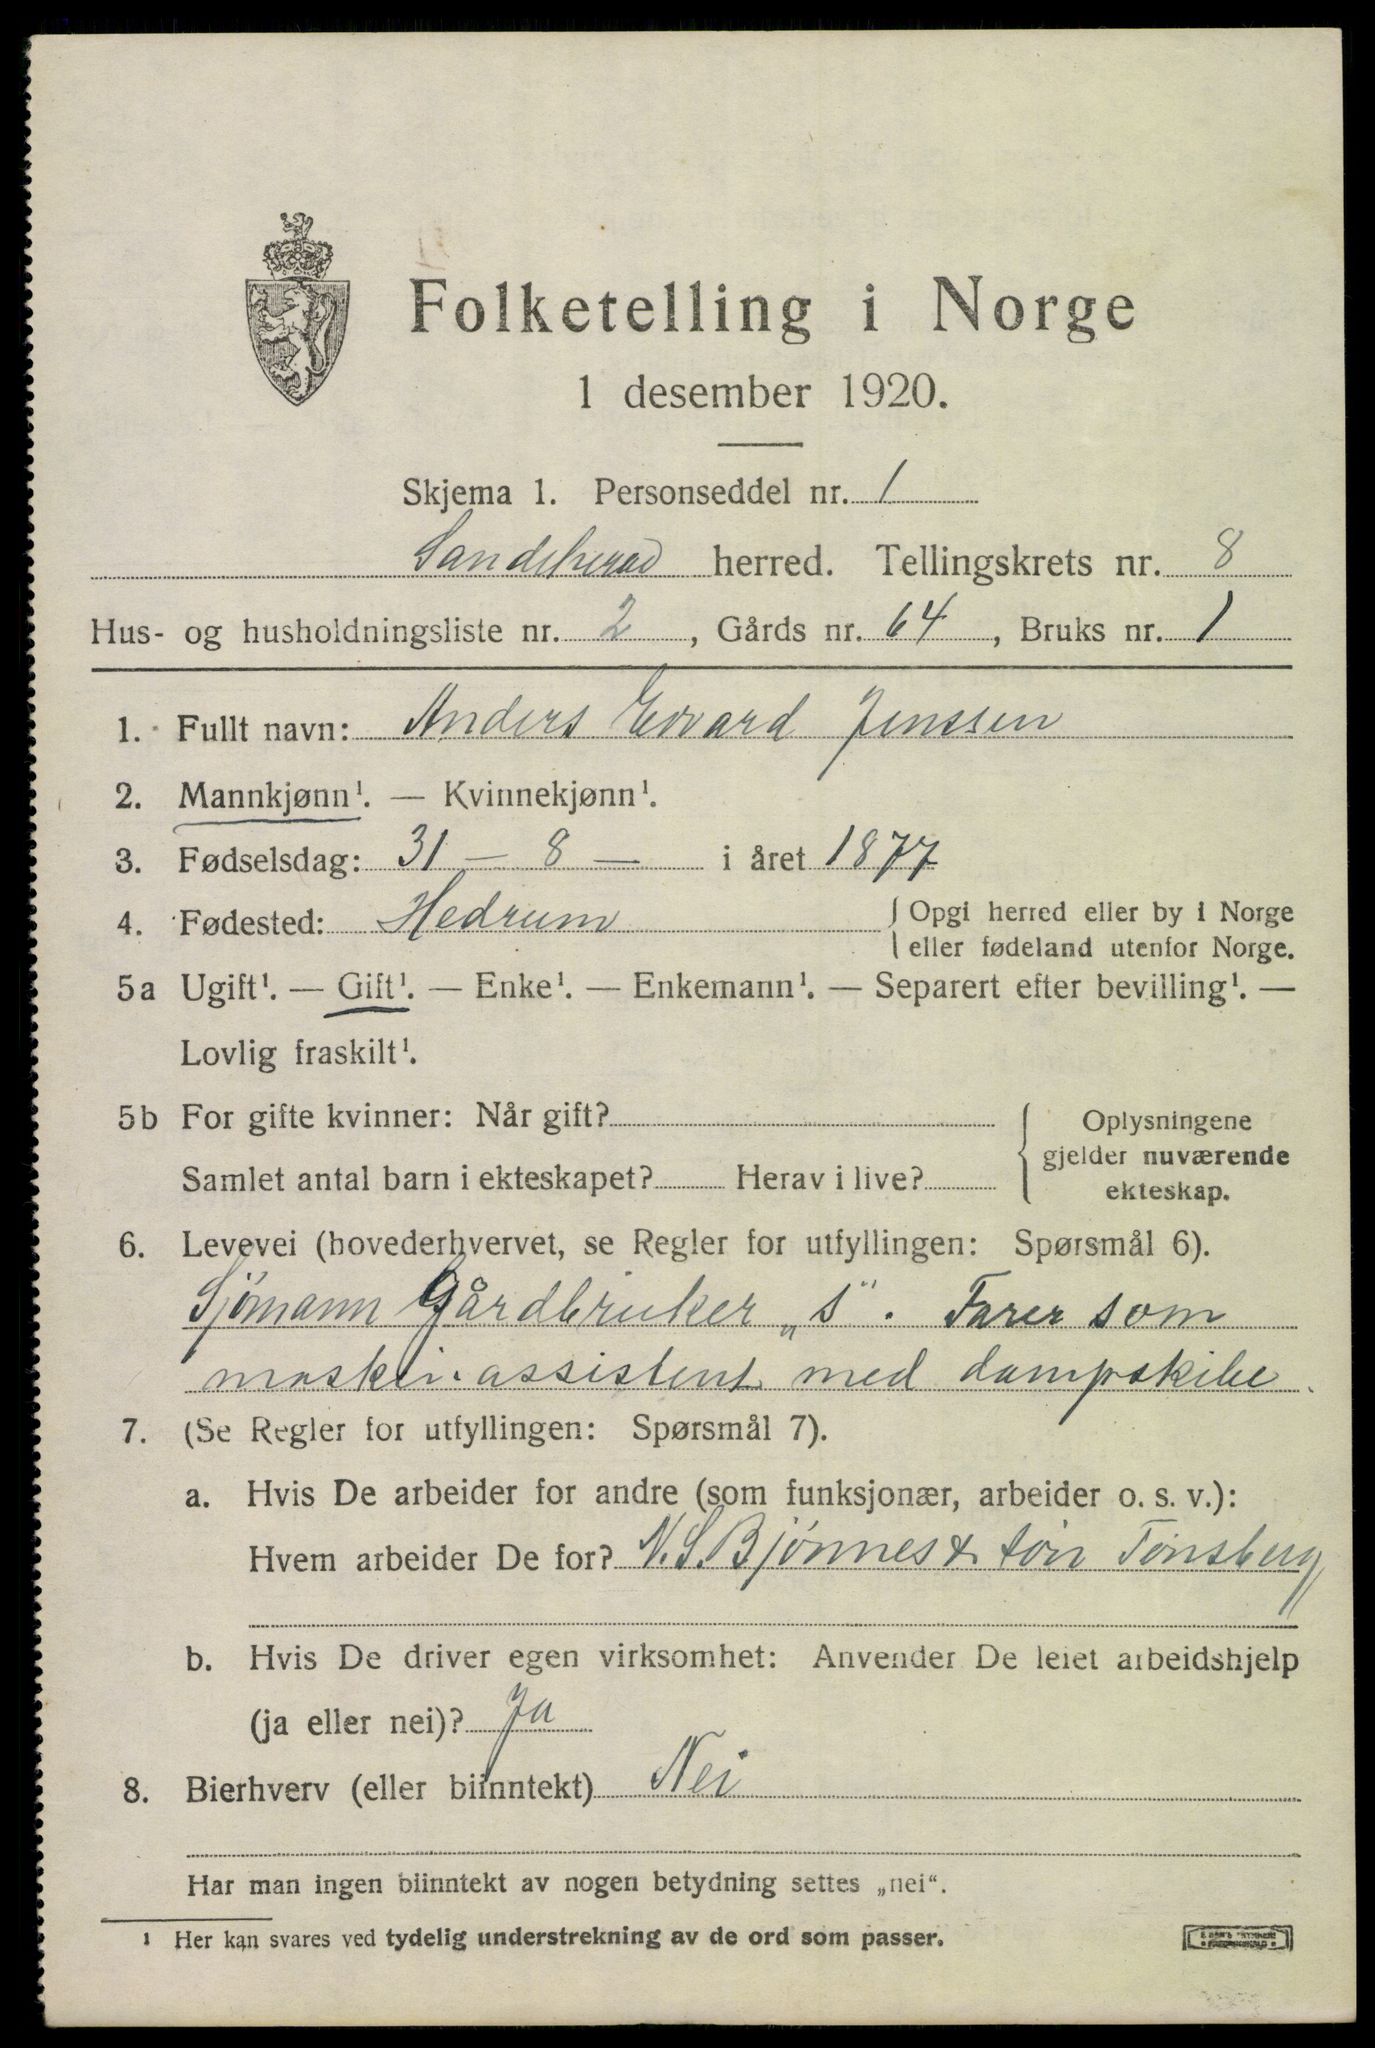 Folketelling i Norge
1 desember 1920.
Skjema 1. Personseddel nr. 1
Sandeherad herred. Tellingskrets nr. 8
Hus- og husholdningsliste nr. 2, Gårds nr. 64, Bruks nr. 1
1. Fullt navn: Anders Edvard Jenssen
2. Mannkjønn¹. — Kvinnekjønn¹.
3. Fødselsdag: 31 — 8 — i året 1877
4. Fødested: Hedrum { Opgi herred eller by i Norge
eller fødeland utenfor Norge.
5a Ugift¹. — Gift¹. — Enke¹. — Enkemann¹. — Separert efter bevilling¹. —
Lovlig fraskilt¹.
5b For gifte kvinner: Når gift?
Samlet antal barn i ekteskapet? Herav i live?
{ Oplysningene
gjelder nuværende
ekteskap.
6. Levevei (hovederhvervet, se Regler for utfyllingen: Spørsmål 6).
Sjömann Gårdbruker „s“. Farer som
maskin.assistent med dampskibe
7. (Se Regler for utfyllingen: Spørsmål 7).
a. Hvis De arbeider for andre (som funksjonær, arbeider o. s. v.):
Hvem arbeider De for? N.S. Bjönnes & Tönsberg
b. Hvis De driver egen virksomhet: Anvender De leiet arbeidshjelp
(ja eller nei)? Ja
8. Bierhverv (eller biinntekt) Nei
Har man ingen biinntekt av nogen betydning settes „nei“.
¹ Her kan svares ved tydelig understrekning av de ord som passer.